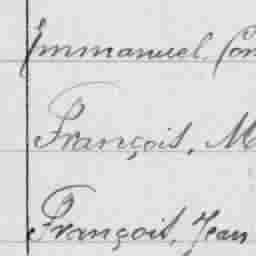 Emmanuel, Com
François, M
François, Jean